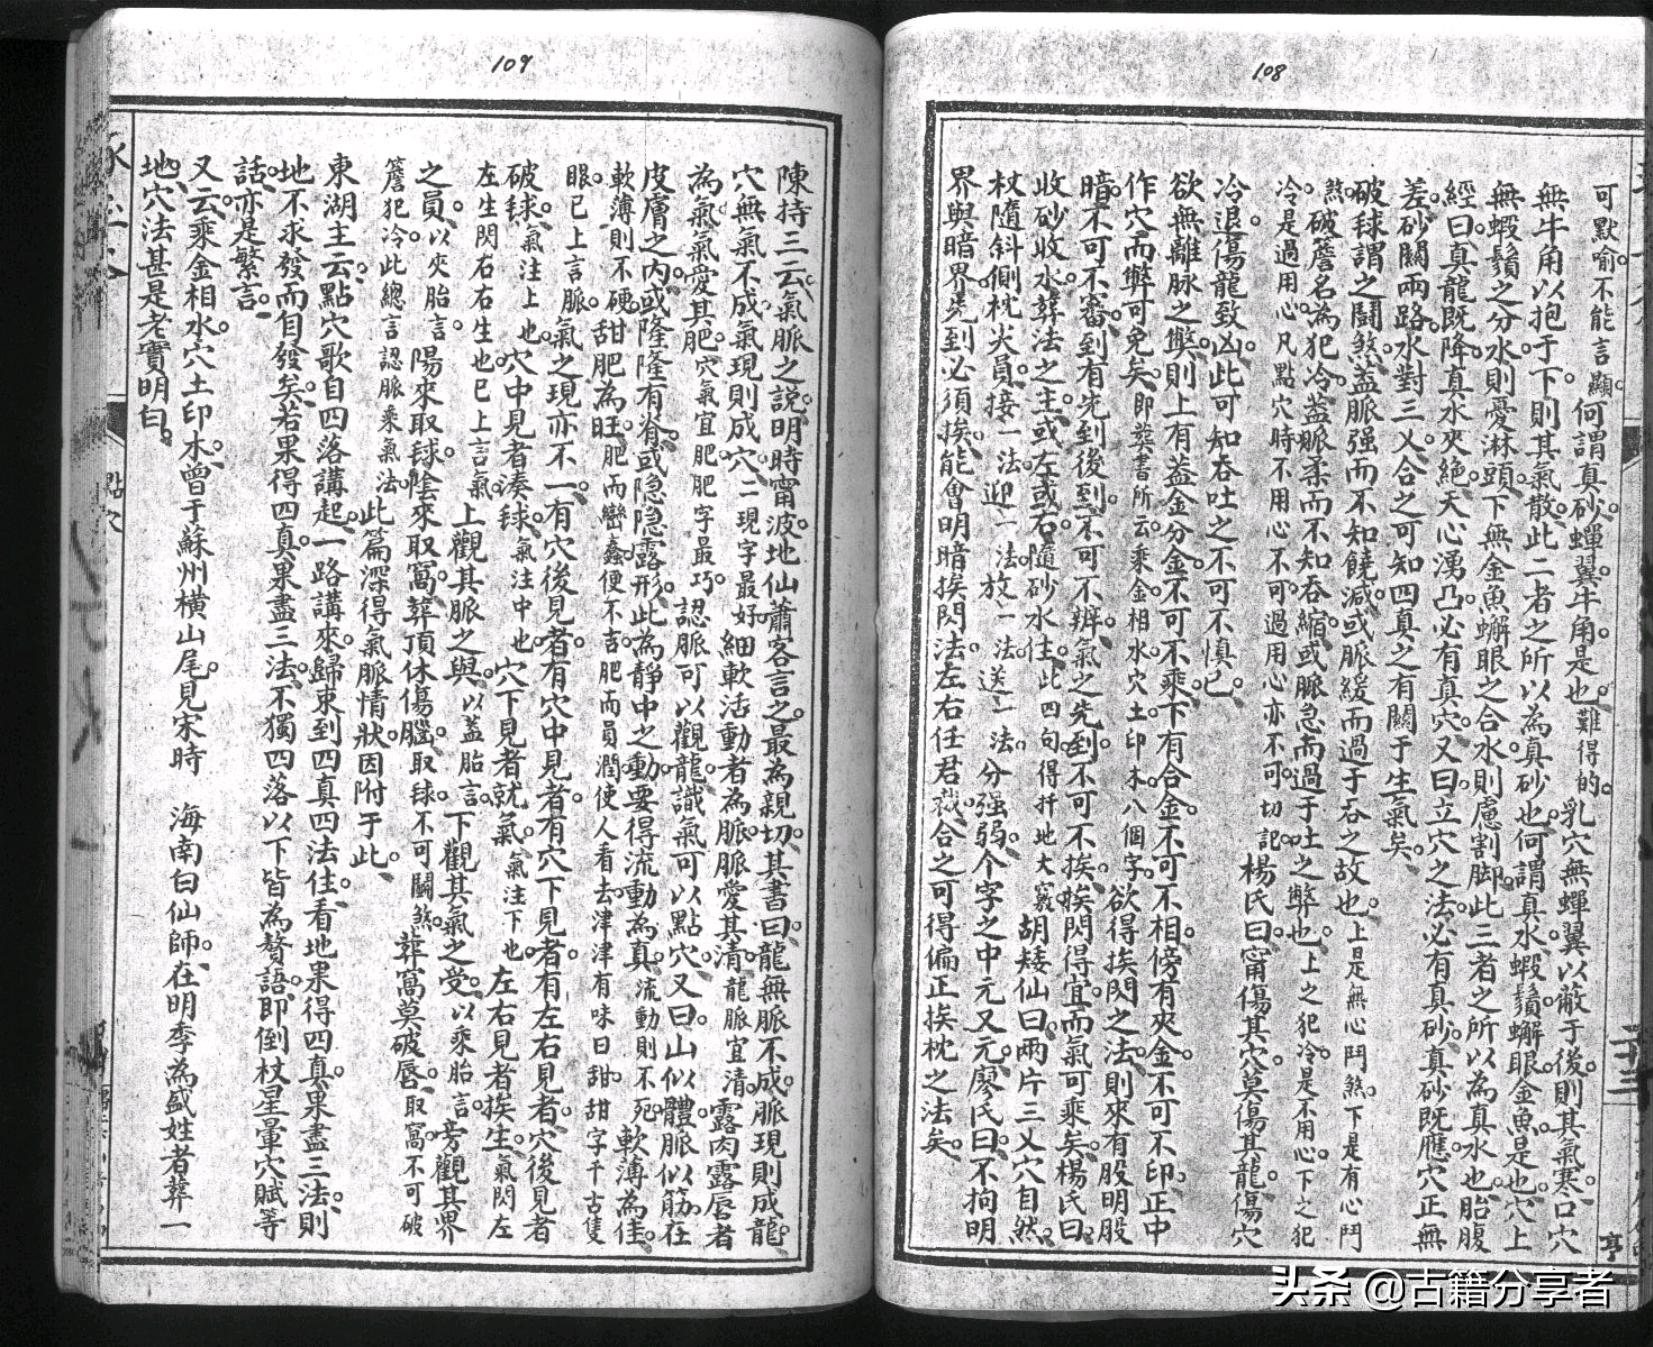 108
可默喻不能言顯何謂真砂蟬翼牛角是也難得的乳穴無蟬翼以蔽于後則其氣寒口穴
無牛角以抱于下則其氣散此二者之所以為真砂也何謂真水蝦鬚蠏眼金魚是也穴上
無蝦鬚之分水則憂淋頭下無金魚蠏眼之合水則慮割脚此三者之所以為真水也胎腹
經曰真龍既降真水夾絕天心湧凸必有真穴又曰立穴之法必有真砂真砂既應穴正無
差砂關兩路水對三乂合之可知四真之有關于生氣矣
破毬謂之鬪煞蓋脈强而不知饒減或脈緩而過于吞之故也上是無心鬥煞下是有心鬥
煞破簷名為犯冷蓋脈柔而不知吞縮或脈急而過于吐之弊也上之犯冷是不用心下之犯
冷是過用心凡點穴時不用心不可過用心亦不可切記楊氏曰寗傷其穴莫傷其龍傷穴
冷退傷龍致凶此可知吞吐之不可不慎已
欲無離脉之弊則上有蓋金分金不可不乘下有合金不可不相傍有夾金不可不印正中
作穴而弊可免矣即葬書所云乘金相水穴土印木八個字欲得挨閃之法則來有股明股
暗不可不審到有先到後到不可不辨氣之先到不可不挨挨閃得宜而氣可乘矣楊氏曰
收砂收水葬法之主或左或右隨砂水住此四句得扦地大竅胡矮仙曰兩片三乂穴自然
杖隨斜側枕尖員接一法迎一法放一法送一法分强弱个字之中元又元廖氏曰不拘明
界與暗界先到必須挨能會明暗挨閃法左右任君裁合之可得偏正挨枕之法矣
亨
109
陳持三云氣脈之說明時甯波地仙蕭客言之最為親切其書曰龍無脈不成脈現則成龍
穴無氣不成氣現則成穴二現字最好細軟活動者為脈脈愛其清龍脈宜清露肉露唇者
為氣氣愛其肥穴氣宜肥肥字最巧認脈可以觀龍識氣可以點穴又曰山似體脈似筋在
皮膚之內或隆隆有脊或隱隱露形此為靜中之動要得流動為真流動則不死軟薄為佳
軟薄則不硬甜肥為旺肥而巒蠢便不吉肥而員潤使人看去津津有味曰甜甜字千古隻
眼已上言脈氣之現亦不一有穴後見者有穴中見者有穴下見者有左右見者穴後見者
破毬氣注上也穴中見者湊毬氣注中也穴下見者就氣氣注下也左右見者挨生氣閃左
左生閃右右生也已上言氣上觀其脈之與以蓋胎言下觀其氣之受以乘胎言旁觀其界
之員以夾胎言陽來取毬陰來取窩葬頂休傷腦取毬不可鬬煞葬窩莫破唇取窩不可破
簷犯冷此總言認脈乘氣法此篇深得氣脈情狀因附于此
東湖主云點穴歌自四落講起一路講來歸束到四真四法住看地果得四真果盡三法則
地不求發而自發矣若果得四真果盡三法不獨四落以下皆為贅語即倒杖星暈穴賦等
話亦是繁言
又云乘金相水穴土印木曾于蘇州橫山尾見宋時 海南白仙師在明季為盛姓者葬一
地穴法甚是老實明白
點穴
头条 @古籍分享者